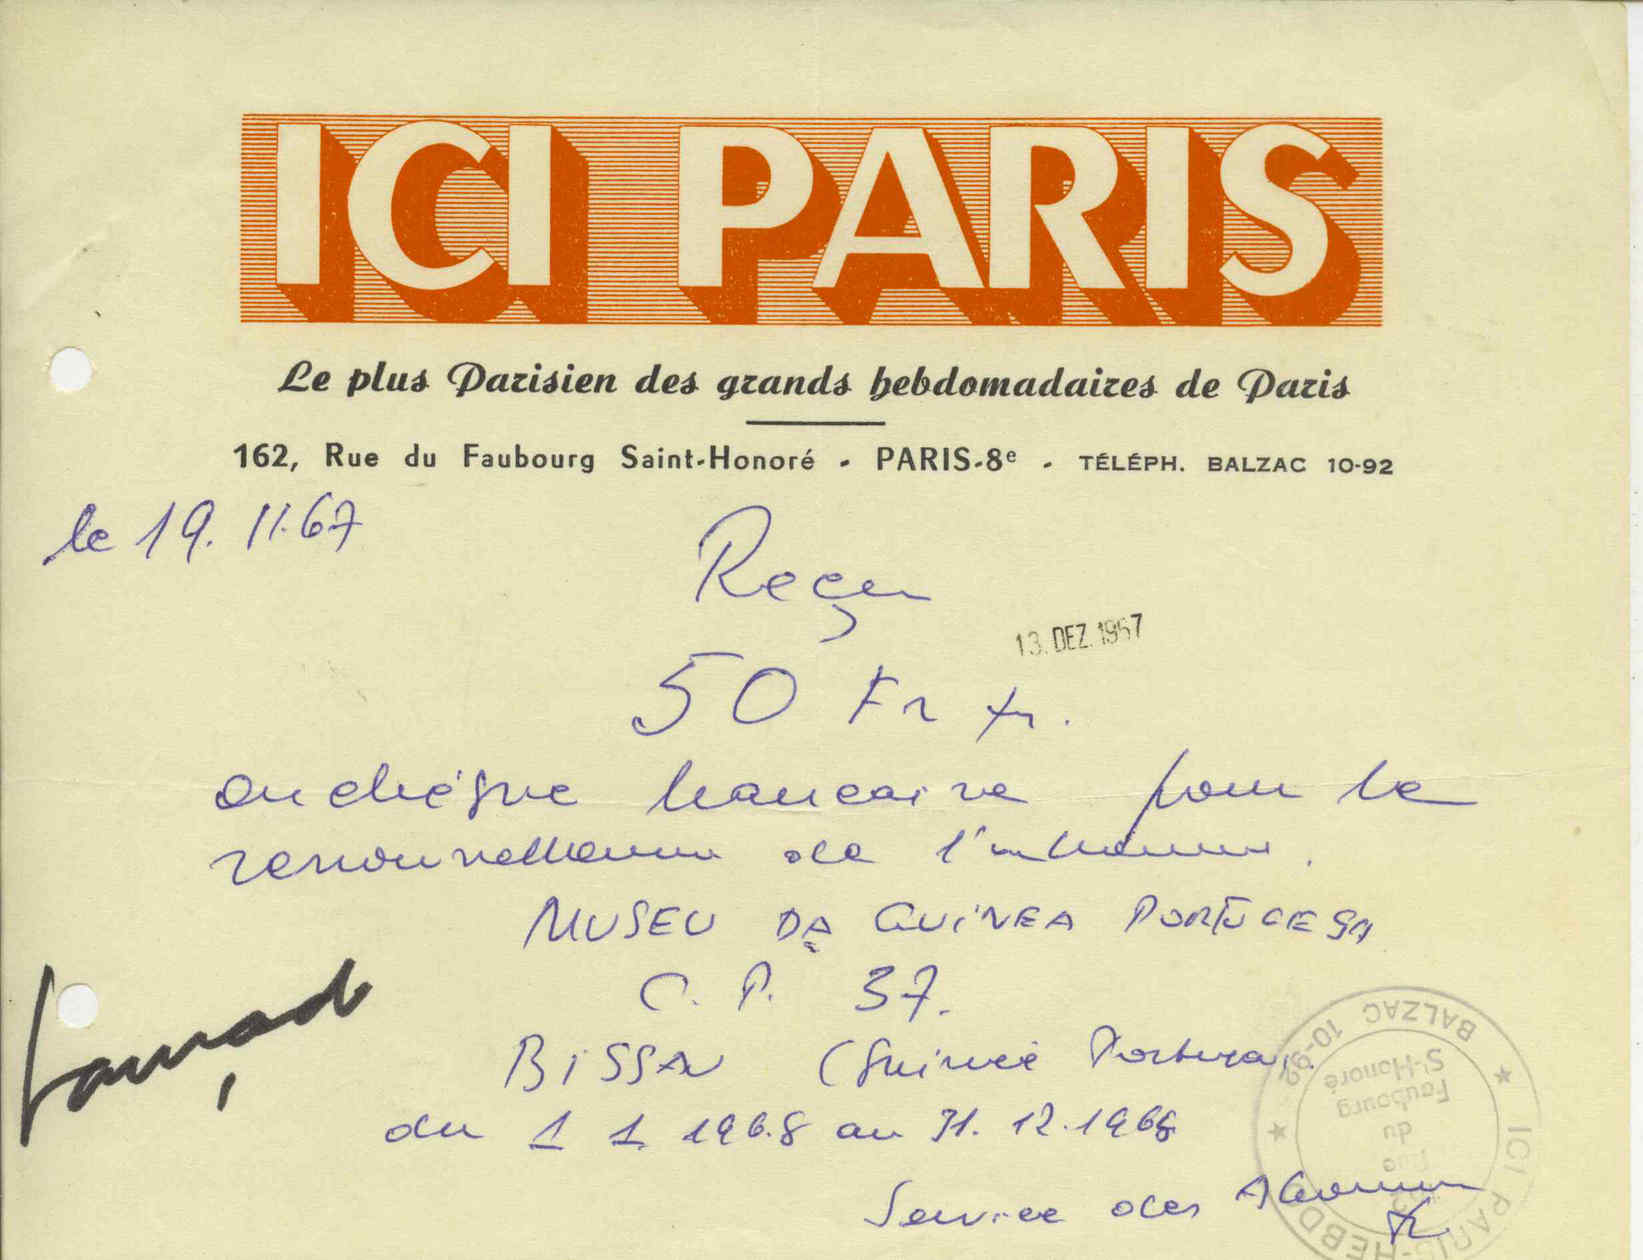 ICI PARIS
Le plus Parisien des grands hebdomadaires de Paris
162, Rue du Faubourg Saint-Honoré - PARIS-8e - TÉLÉPH. BALZAC 10-92
le 19.11.67
Reçu
13. DEZ. 1967
50 Fr
chèque bancaire pour le
renouvellement de l'
MUSEU DA GUINEA PORTUGESA
C. P. 37.
BISSAU (Guinée
du 1 1 1968 au 31.12.1968
Service des
ICI PARIS HEBDO ★ BALZAC 10-92 ★
Rue
du
Faubourg
St-Honoré